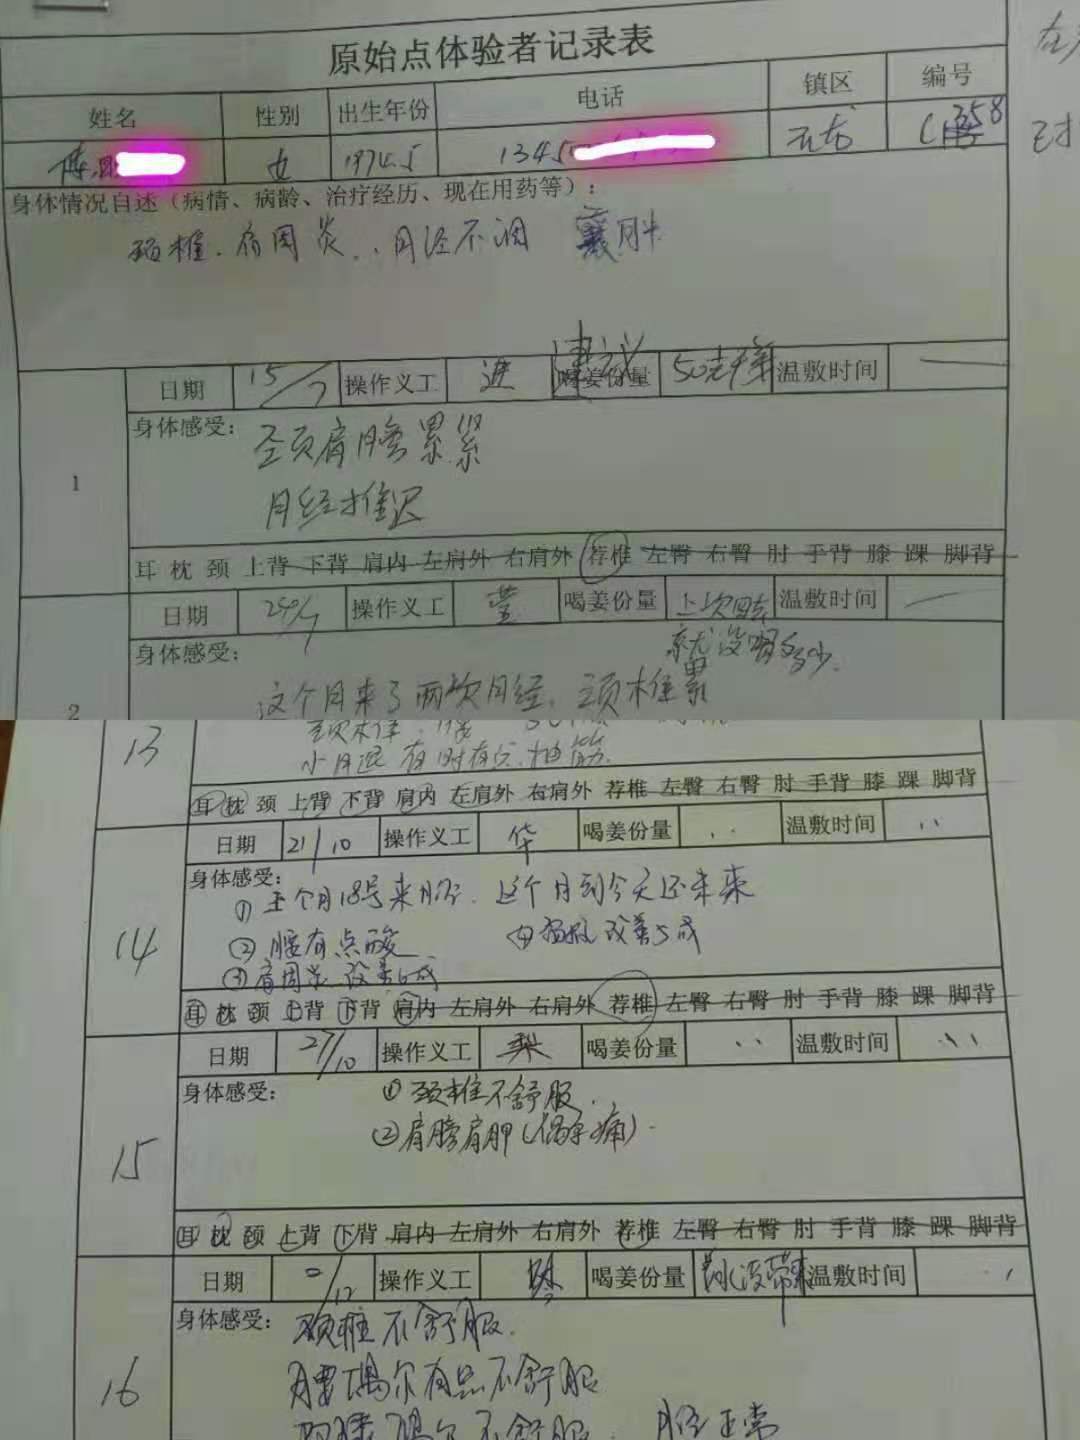 原始点体验者记录表
姓名 性别 出生年份 电话 镇区 编号
女 1974.5 1345 358
身体情况自述（病情、病龄、治疗经历、现在用药等）：
颈椎、肩周炎、月经不调
建议
1
日期 15/7 操作义工 进 喝姜份量 50克 温敷时间
身体感受：
颈肩膀累紧
月经推迟
耳 枕 颈 上背 下背 肩内 左肩外 右肩外 荐椎 左臀 右臀 肘 手背 膝 踝 脚背
2
日期 29/7 操作义工 莹 喝姜份量 上次回去 温敷时间
就没喝多少.
身体感受：
这个月来了两次月经、颈椎累
13
颈椎
小腿 有时有点抽筋
耳 枕 颈 上背 下背 肩内 左肩外 右肩外 荐椎 左臀 右臀 肘 手背 膝 踝 脚背
14
日期 21/10 操作义工 华 喝姜份量 温敷时间
身体感受：
① 个月18号来月经. 这个月到今天还未来
② 腰有点酸 ④ 改善5成
③ 肩周炎 改善6成
耳 枕 颈 上背 下背 肩内 左肩外 右肩外 荐椎 左臀 右臀 肘 手背 膝 踝 脚背
15
日期 27/10 操作义工 梨 喝姜份量 温敷时间
身体感受：
① 颈椎不舒服.
② 肩膀肩胛(偶尔痛).
耳 枕 颈 上背 下背 肩内 左肩外 右肩外 荐椎 左臀 右臀 肘 手背 膝 踝 脚背
16
日期 /12 操作义工 喝姜份量 没带来 温敷时间
身体感受：
颈椎不舒服.
腰偶尔有点不舒服
偶尔不舒服. 月经正常